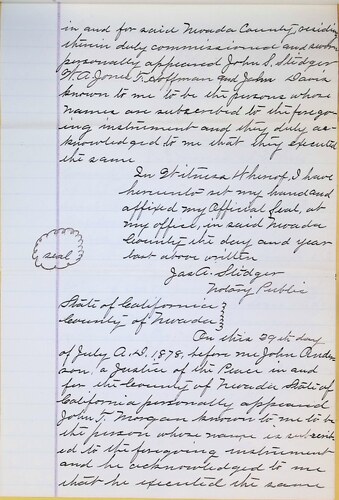 in and for said Nevada County residing
therein duly commissioned and sworn
personally appeared John S. Sledger
W. A. Jones T. Hoffman and John Davis
known to me to be the persons whose
names are subscribed to the foregoing
ing instrument and they duly ac-
knowledged to me that they executed
the same
In Witness Whereof, I have
hereunto set my hand and
affixed my Official Seal, at
my office, in said Nevada
County the day and year
last above written
seal
Jas A. Sledger
Notary Public
State of California
County of Nevada
On this 29th day
of July A.D. 1878, before me John Ander
son, a Justice of the Peace in and
for the County of Nevada State of
California personally appeared
John T. Morgan known to me to be
the person whose name is subscrib
ed to the foregoing instrument
and he acknowledged to me
that he executed the same